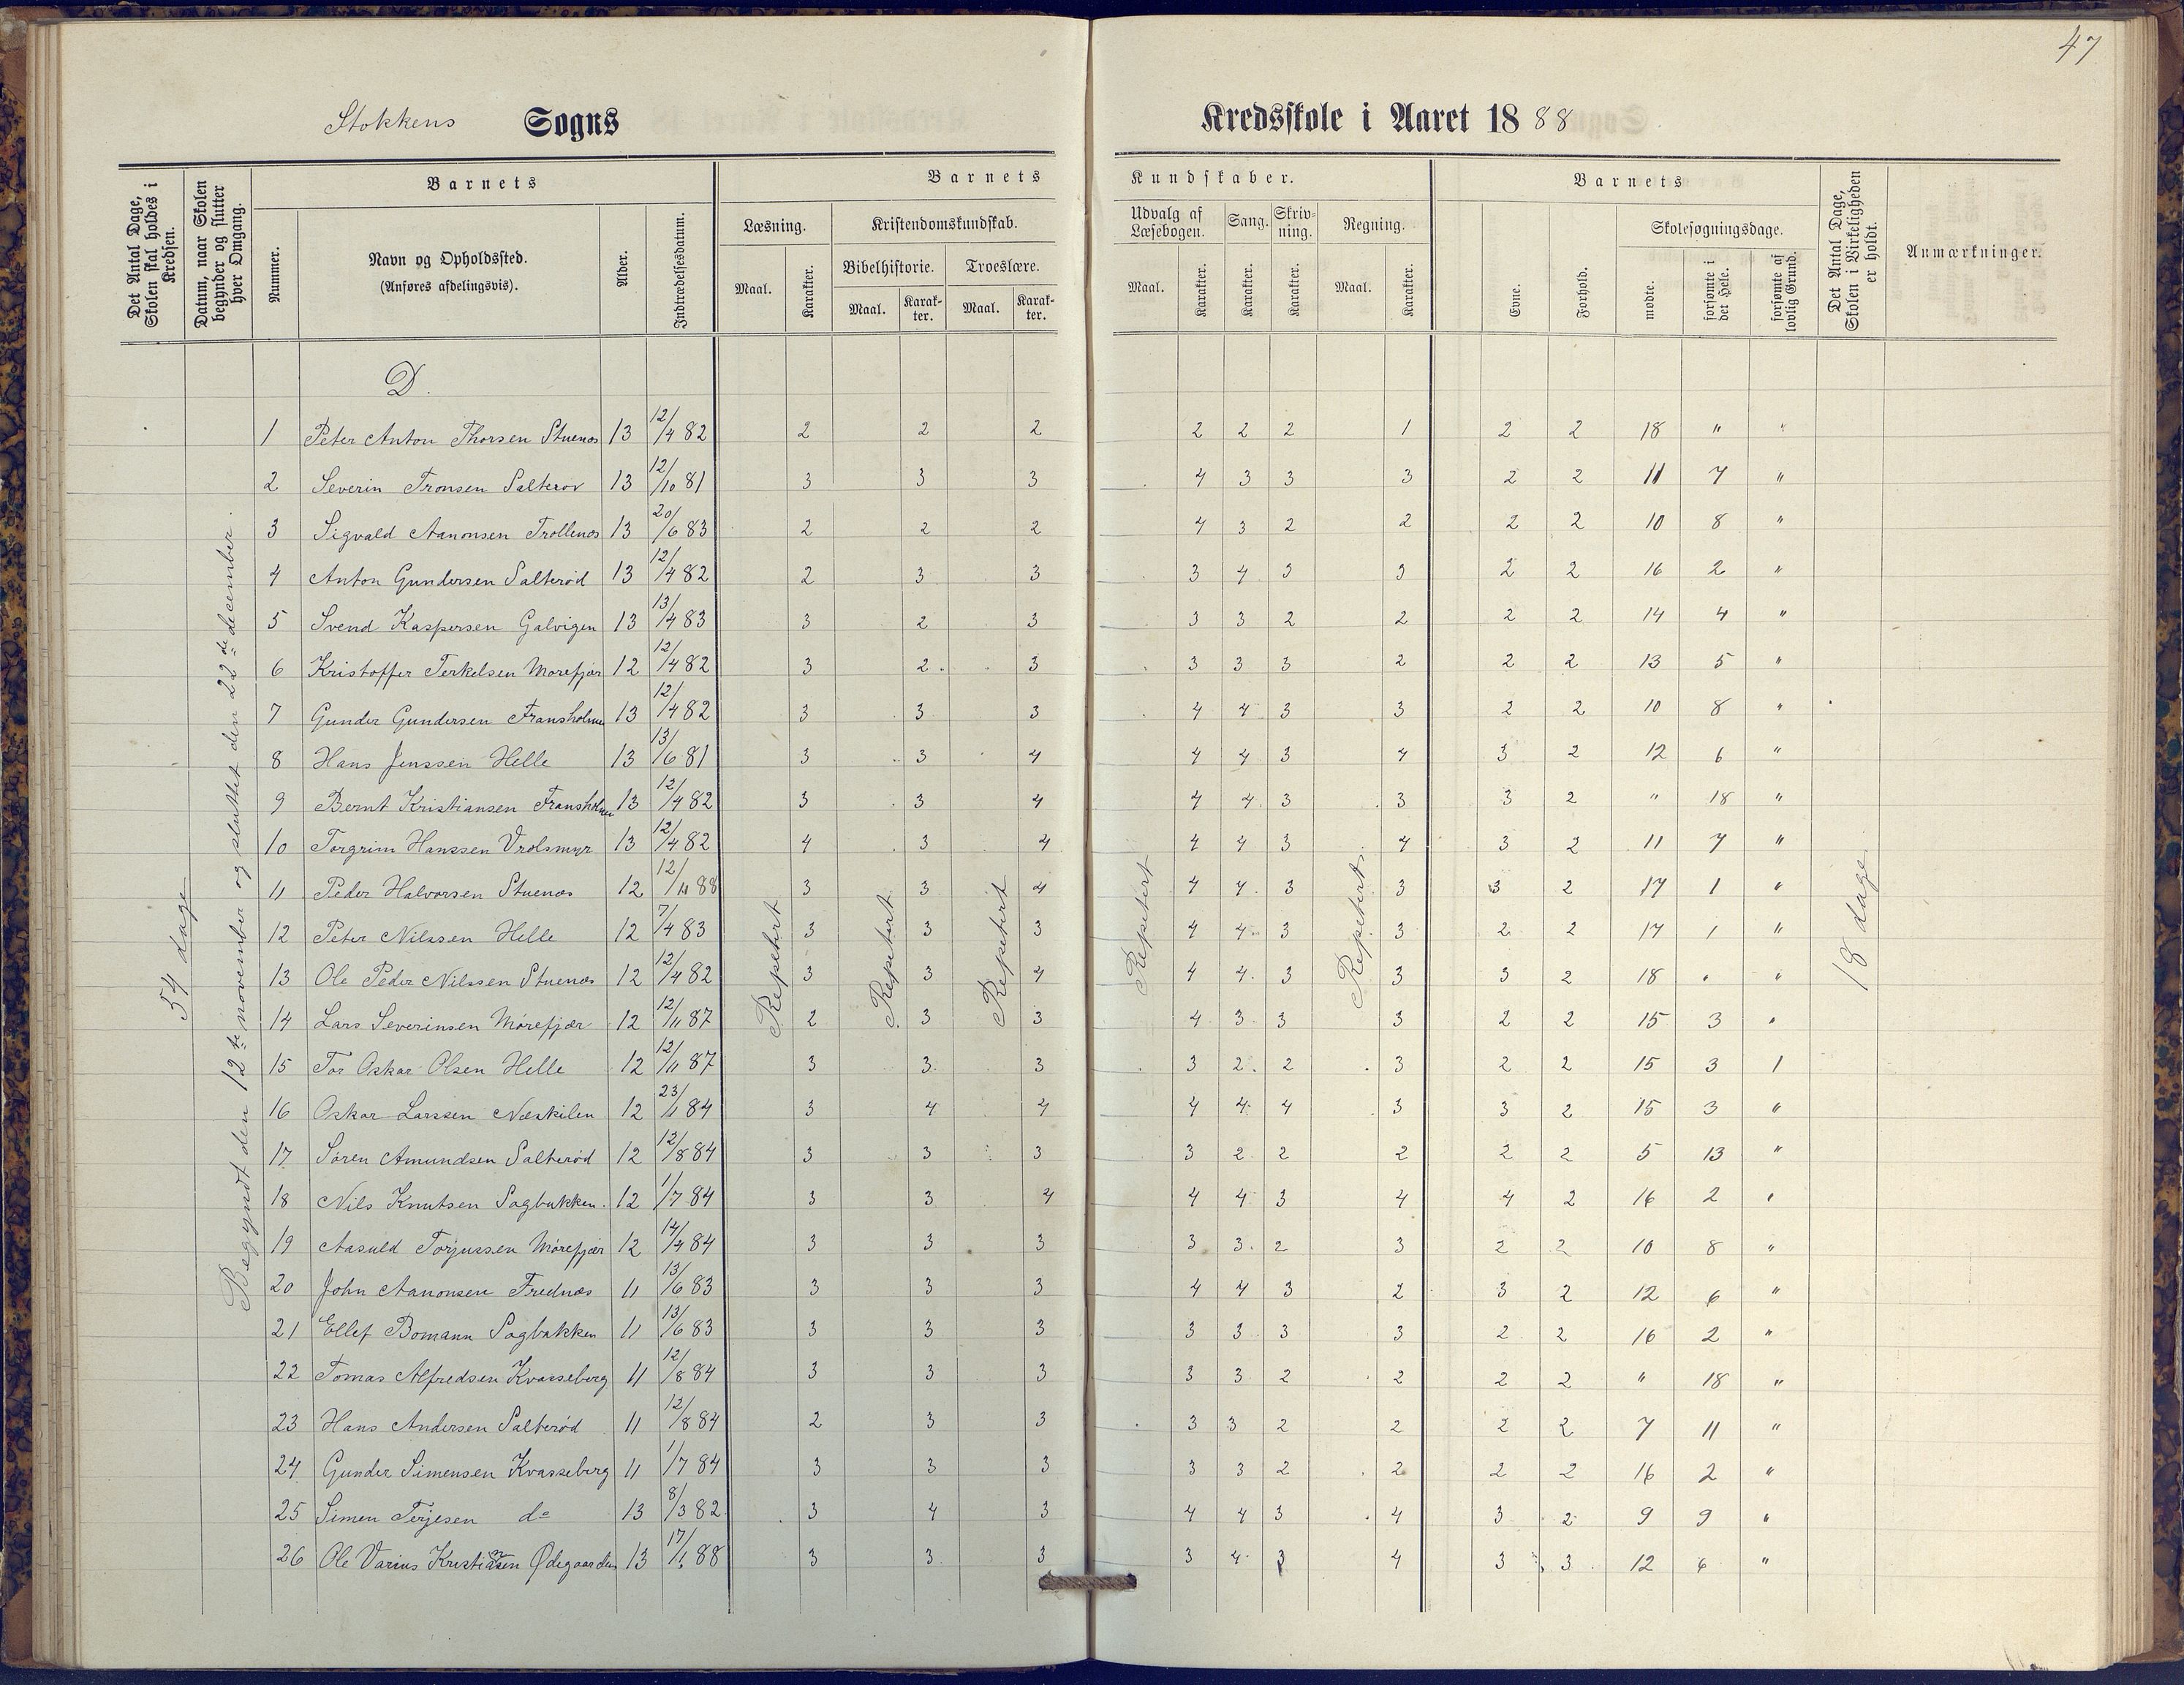 47
Stokkens Sogns Kredsskole i Aaret 1888
Det Antal Dage, Skolen skal holdes i Kredsen.
Datum, naar Skolen begynder og slutter hver Omgang.
Barnets
Nummer.
Navn og Opholdssted.
(Anføres afdelingsvis).
Alder.
Indtrædelsesdatum.
Barnets Kundskaber.
Læsning.
Maal. Karakter.
Kristendomskundskab.
Bibelhistorie. Troeslære.
Maal. Karakter. Maal. Karakter.
Udvalg af Læsebogen.
Maal. Karakter.
Sang.
Karakter.
Skrivning.
Karakter.
Regning.
Maal. Karakter.
Barnets
Evne. Forhold.
Skolesøgningsdage.
mødte. forsømte i det Hele. forsømte af lovlig Grund.
Det Antal Dage, Skolen i Virkeligheden er holdt.
Anmærkninger.
54 dage
Begyndt den 12te november og sluttet den 22de december.
D.
1 Peter Anton Thorsen Stuenæs 13 12/4 82 2 2 2 2 2 2 1 2 2 18 " "
2 Severin Tronsen Salterøv 13 12/10 81 3 3 3 4 3 3 3 2 2 11 7 "
3 Sigvald Aanonsen Trollenæs 13 20/6 83 2 2 2 4 3 2 2 2 2 10 8 "
4 Anton Gundersen Salterød 13 12/4 82 2 3 3 3 4 3 3 2 2 16 2 "
5 Svend Kaspersen Galvigen 13 13/4 83 3 2 3 3 3 2 2 2 2 14 4 "
6 Kristoffer Terkelsen Morefjær 12 12/4 82 3 2 3 3 3 3 2 2 2 13 5 "
7 Gunder Gundersen Fransholmen 13 12/4 82 3 3 3 4 4 3 3 2 2 10 8 "
8 Hans Jenssen Helle 13 13/6 81 3 3 4 4 4 3 4 3 2 12 6 "
9 Bernt Kristiansen Fransholmen 13 12/4 82 3 3 4 4 4 3 3 3 2 " 18 "
10 Torgrim Hanssen Vrolsmyr 13 12/4 82 4 3 4 4 4 3 4 3 2 11 7 "
11 Peder Halvorsen Stuenæs 12 12/11 88 3 3 4 4 4 3 3 3 2 17 1 "
12 Peter Nilssen Helle 12 7/4 83 3 3 3 4 4 3 3 2 2 17 1 "
13 Ole Peder Nilssen Stuenæs 12 12/4 82 3 3 4 4 4 3 3 3 2 18 " "
14 Lars Severinsen Mørefjær 12 12/11 87 2 3 3 4 3 3 3 2 2 15 3 "
15 Tor Oskar Olsen Helle 12 12/11 87 3 3 3 3 2 2 3 2 2 15 3 1
16 Oskar Larssen Næskilen 12 23/11 84 3 4 4 4 4 4 3 3 2 15 3 "
17 Søren Amundsen Salterød 12 12/8 84 3 3 3 3 2 2 2 2 2 5 13 "
18 Nils Knutsen Sagbakken 12 1/7 84 3 3 4 4 4 3 4 4 2 16 2 "
19 Aasuld Torjussen Mørefjær 12 14/4 84 3 3 3 3 3 2 3 2 2 10 8 "
20 John Aanonsen Frednæs 11 13/6 83 3 3 3 4 4 3 2 3 2 12 6 "
21 Ellef Bomann Sagbakken 11 13/6 83 3 3 3 3 3 3 3 2 2 16 2 "
22 Tomas Alfredsen Kvasseberg 11 12/8 84 3 3 3 3 3 2 2 2 2 " 18 "
23 Hans Andersen Salterød 11 12/8 84 2 3 3 3 3 2 2 2 2 7 11 "
24 Gunder Simensen Kvasseberg 11 1/7 84 3 3 3 3 3 2 2 2 2 16 2 "
25 Simen Terjesen do 13 8/3 82 3 4 3 4 4 3 4 3 2 9 9 "
26 Ole Varius Kristiansen Ødegaarden 13 17/1 88 3 3 3 3 4 3 4 3 3 12 6 "
Repetert
Repetert
Repetert
Repetert
Repetert
18 dage